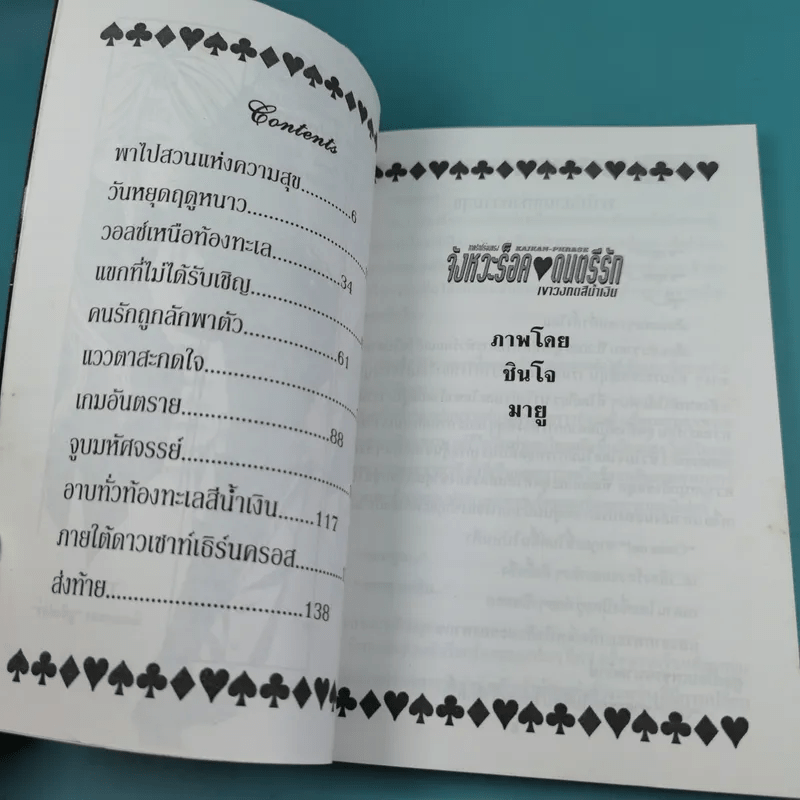 Contents
พาไปสวนแห่งความสุข............6
วันหยุดฤดูหนาว
วอลซ์เหนือท้องทะเล............34
แขกที่ไม่ได้รับเชิญ
คนรักถูกลักพาตัว............61
แววตาสะกดใจ
เกมอันตราย............88
จูบมหัศจรรย์
อาบทั่วท้องทะเลสีน้ำเงิน.......117
ภายใต้ดาวเซาท์เธิร์นครอส
ส่งท้าย............138
KAIKAN-PHRASE
จังหวะร็อค♥ดนตรีรัก
เขาวงกตสีน้ำเงิน
ภาพโดย
ชินโจ
มายู